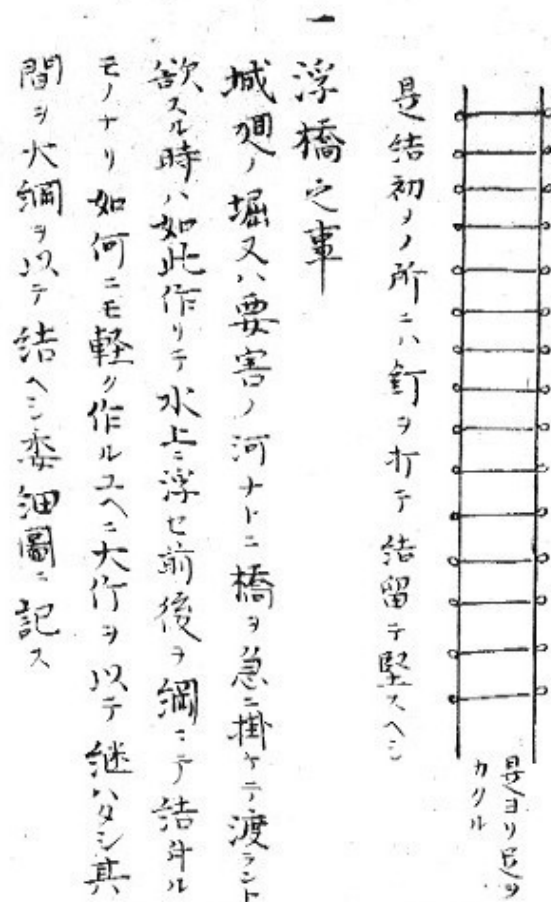 是ヨリ足ヲ
カクル
是結初メノ所ニハ釘ヲ打テ結留テ堅スヘシ
一浮橋之事
城廻ノ堀又ハ要害ノ河ナトニ橋ヲ急ニ掛ケテ渡ラント
欲スル時ハ如此作リテ水上ニ浮セ前後ヲ綱ニテ結
モノナリ如何ニモ軽ク作ルユヘニ大竹ヲ以テ継ハタシ其
間ヲ火綱ヲ以テ結ヘシ委細圖ニ記ス